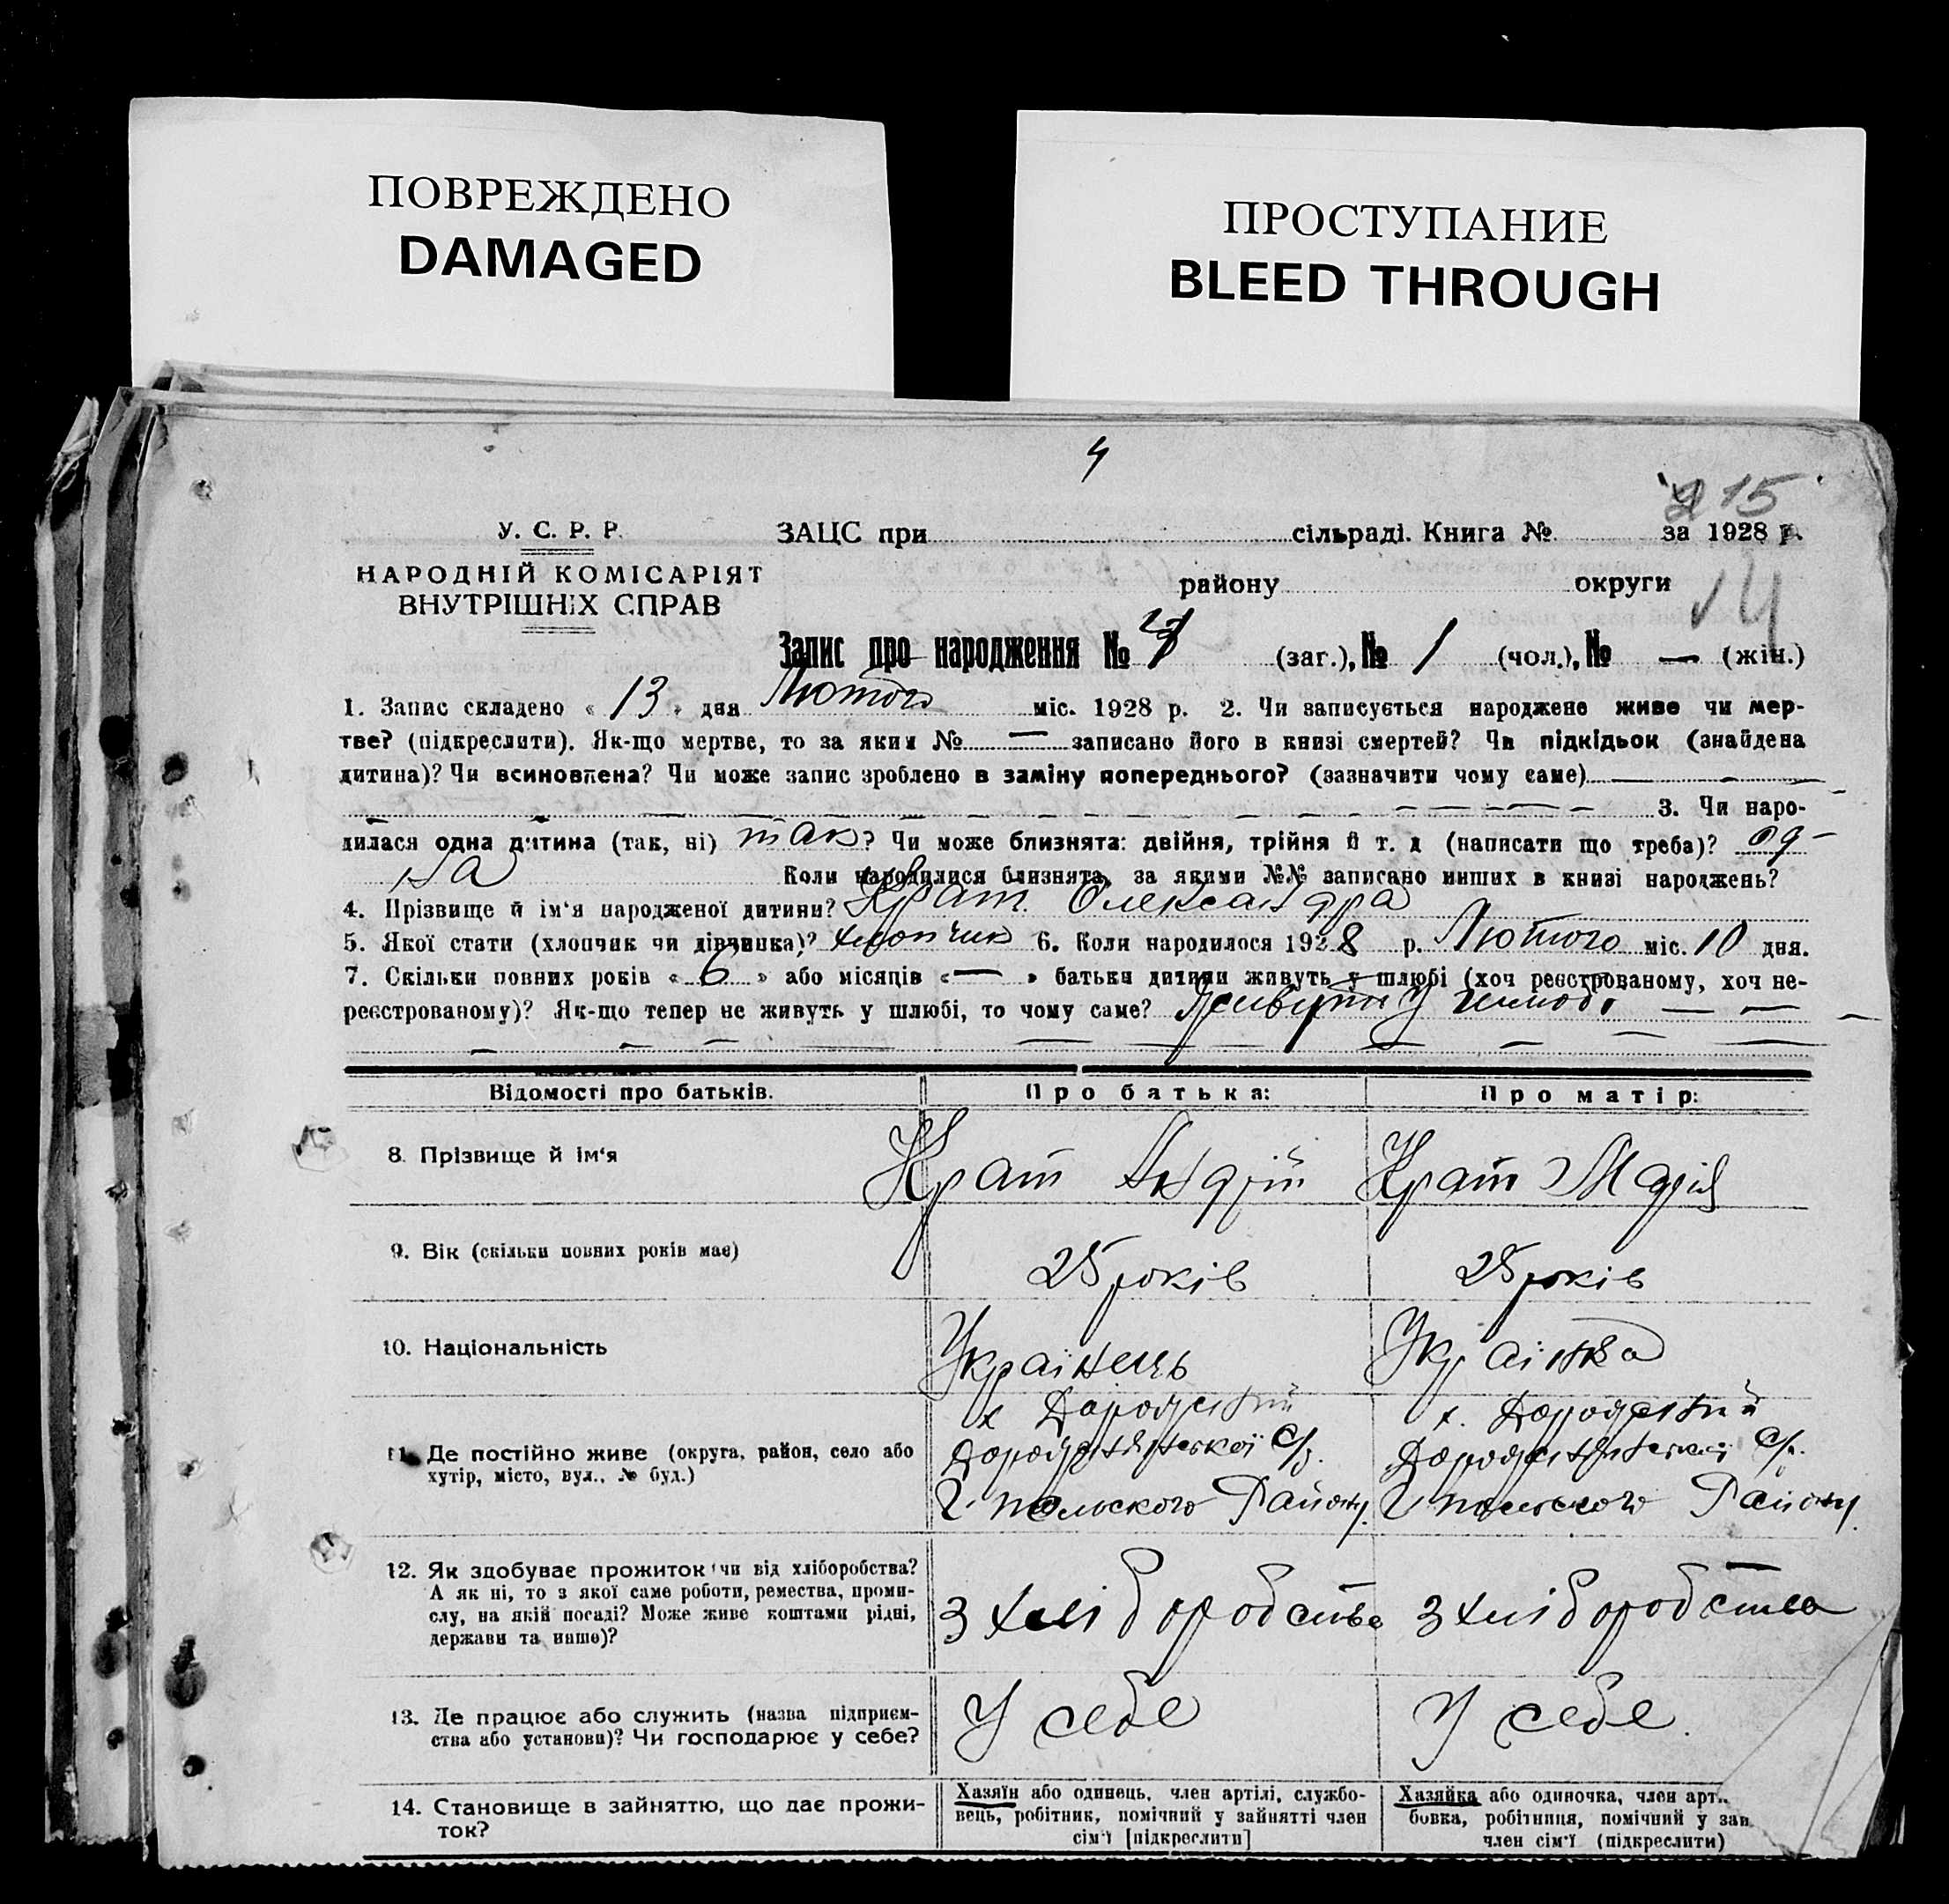 ПОВРЕЖДЕНО
DAMAGED
ПРОСТУПАНИЕ
BLEED THROUGH
4
15
У. С. Р. Р. ЗАЦС при сільраді. Книга № за 1928 р.
НАРОДНІЙ КОМІСАРІЯТ
ВНУТРІШНІХ СПРАВ
району округи
14
Запис про народження № (заг.), № 1 (чол.), № — (жін.)
1. Запис складено « 13 » дня Лютого міс. 1928 р. 2. Чи записується народжене живе чи мер-
тве? (підкреслити). Як-що мертве, то за яким № — записано його в книзі смертей? Чи підкідьок (знайдена
дитина)? Чи всиновлена? Чи може запис зроблено в заміну попереднього? (зазначити чому саме)
3. Чи наро-
дилася одна дитина (так, ні) так? Чи може близнята: двійня, трійня й т. д (написати що треба)? од-
на Коли народилися близнята, за якими №№ записано инших в книзі народжень?
4. Прізвище й ім'я народженої дитини? Крат Олександра
5. Якої стати (хлопчик чи дівчинка)? хлопчик 6. Коли народилося 1928 р. Лютого міс. 10 дня.
7. Скільки повних років « 6 » або місяців « — » батьки дитини живуть у шлюбі (хоч реєстрованому, хоч не-
реєстрованому)? Як-що тепер не живуть у шлюбі, то чому саме? Живуть у шлюбі — —
Відомості про батьків. Про батька: Про матір:
8. Прізвище й ім'я Крат Андрій Крат Марія
9. Вік (скільки повних років має) 25 років 25 років
10. Національність Українець Українка
11. Де постійно живе (округа, район, село або
хутір, місто, вул., № буд.)
х. х.
с/р. с/р.
Району Району
12. Як здобуває прожиток чи від хліборобства?
А як ні, то з якої саме роботи, ремества, проми-
слу, на якій посаді? Може живе коштами рідні,
держави та инше)?
З хліборобства З хліборобства
13. Де працює або служить (назва підприєм-
ства або установи)? Чи господарює у себе?
У себе У себе.
14. Становище в зайняттю, що дає прожи-
ток?
Хазяїн або одинець, член артілі, службо-
вець, робітник, помічний у зайнятті член
сім'ї [підкреслити]
Хазяйка або одиночка, член арт
бовка, робітниця, помічний у зай
член сім'ї (підкреслити)